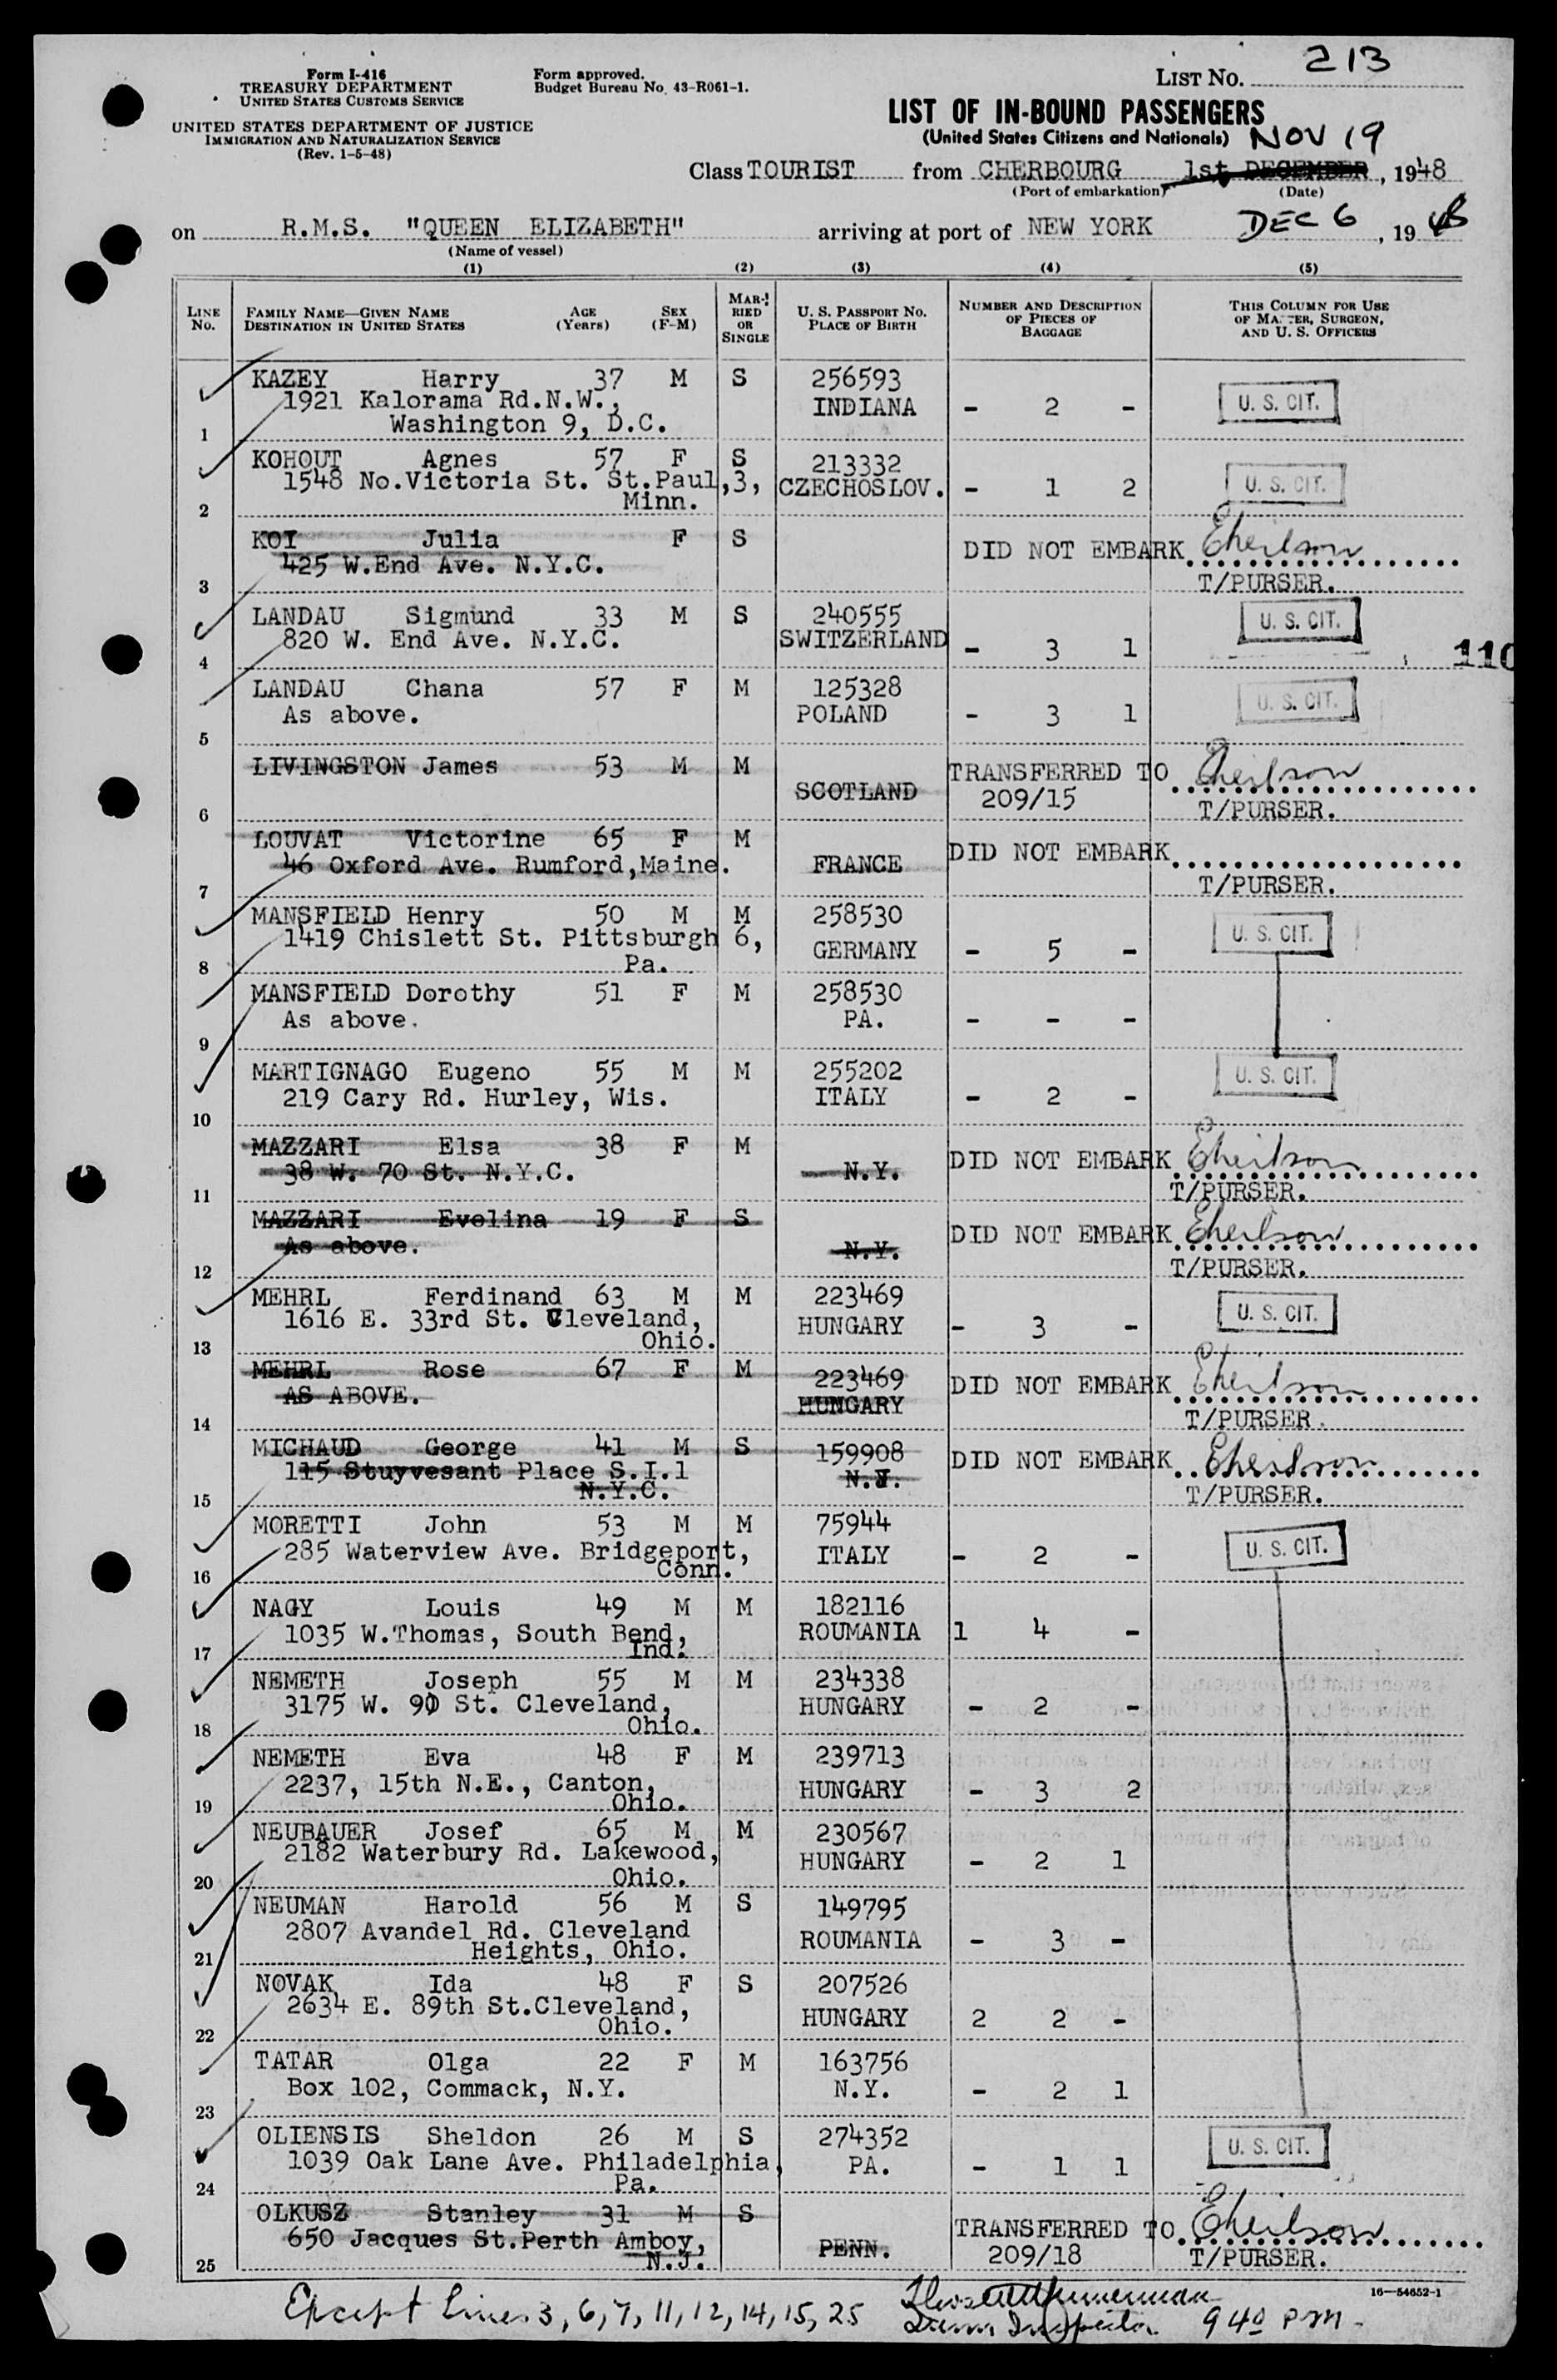 Form I-416
TREASURY DEPARTMENT
UNITED STATES CUSTOMS SERVICE
UNITED STATES DEPARTMENT OF JUSTICE
IMMIGRATION AND NATURALIZATION SERVICE
(Rev. 1-5-48)
Form approved.
Budget Bureau No. 43-R061-1.
LIST NO. 213
LIST OF IN-BOUND PASSENGERS
(United States Citizens and Nationals) NOV 19
Class TOURIST from CHERBOURG 1st DECEMBER, 1948
(Port of embarkation) (Date)
on R.M.S. "QUEEN ELIZABETH" arriving at port of NEW YORK DEC 6, 1948
(Name of vessel)
(1) (2) (3) (4) (5)
LINE NO.
FAMILY NAME—GIVEN NAME AGE (Years) SEX (F-M)
DESTINATION IN UNITED STATES
MARRIED OR SINGLE
U. S. PASSPORT NO.
PLACE OF BIRTH
NUMBER AND DESCRIPTION
OF PIECES OF
BAGGAGE
THIS COLUMN FOR USE
OF MASTER, SURGEON,
AND U. S. OFFICERS
KAZEY Harry 37 M S 256593
1921 Kalorama Rd.N.W., INDIANA - 2 - U. S. CIT.
1 Washington 9, D.C.
KOHOUT Agnes 57 F S 213332
1548 No.Victoria St. St.Paul,3, CZECHOSLOV. - 1 2 U. S. CIT.
2 Minn.
KOI Julia F S DID NOT EMBARK
425 W.End Ave. N.Y.C.
3 T/PURSER.
LANDAU Sigmund 33 M S 240555 U. S. CIT.
820 W. End Ave. N.Y.C. SWITZERLAND - 3 1
4 110
LANDAU Chana 57 F M 125328 U. S. CIT.
As above. POLAND - 3 1
5
LIVINGSTON James 53 M M TRANSFERRED TO
SCOTLAND 209/15
6 T/PURSER.
LOUVAT Victorine 65 F M DID NOT EMBARK
46 Oxford Ave. Rumford,Maine. FRANCE
7 T/PURSER.
MANSFIELD Henry 50 M M 258530
1419 Chislett St. Pittsburgh 6, GERMANY - 5 - U. S. CIT.
8 Pa.
MANSFIELD Dorothy 51 F M 258530
As above. PA. - - -
9
MARTIGNAGO Eugeno 55 M M 255202 U. S. CIT.
219 Cary Rd. Hurley, Wis. ITALY - 2 -
10
MAZZARI Elsa 38 F M DID NOT EMBARK
38 W. 70 St. N.Y.C. N.Y.
11 T/PURSER.
MAZZARI Evelina 19 F S DID NOT EMBARK
As above. N.Y.
12 T/PURSER.
MEHRL Ferdinand 63 M M 223469 U. S. CIT.
1616 E. 33rd St. Cleveland, HUNGARY - 3 -
13 Ohio.
MEHRL Rose 67 F M 223469 DID NOT EMBARK
AS ABOVE. HUNGARY
14 T/PURSER.
MICHAUD George 41 M S 159908 DID NOT EMBARK
115 Stuyvesant Place S.I.1
15 N.Y.C. T/PURSER.
MORETTI John 53 M M 75944
285 Waterview Ave. Bridgeport, ITALY - 2 - U. S. CIT.
16 Conn.
NAGY Louis 49 M M 182116
1035 W.Thomas, South Bend, ROUMANIA 1 4 -
17 Ind.
NEMETH Joseph 55 M M 234338
3175 W. 90 St. Cleveland, HUNGARY - 2 -
18 Ohio.
NEMETH Eva 48 F M 239713
2237, 15th N.E., Canton, HUNGARY - 3 2
19 Ohio.
NEUBAUER Josef 65 M M 230567
2182 Waterbury Rd. Lakewood, HUNGARY - 2 1
20 Ohio.
NEUMAN Harold 56 M S 149795
2807 Avandel Rd. Cleveland ROUMANIA - 3 -
21 Heights, Ohio.
NOVAK Ida 48 F S 207526
2634 E. 89th St.Cleveland, HUNGARY 2 2 -
22 Ohio.
TATAR Olga 22 F M 163756
Box 102, Commack, N.Y. N.Y. - 2 1
23
OLIENSIS Sheldon 26 M S 274352 U. S. CIT.
1039 Oak Lane Ave. Philadelphia, PA. - 1 1
24 Pa.
OLKUSZ Stanley 31 M S TRANSFERRED TO
650 Jacques St.Perth Amboy, PENN. 209/18
25 N.J. T/PURSER.
16—54652-1
Except Lines 3, 6, 7, 11, 12, 14, 15, 25
Inspector 9 40 PM.